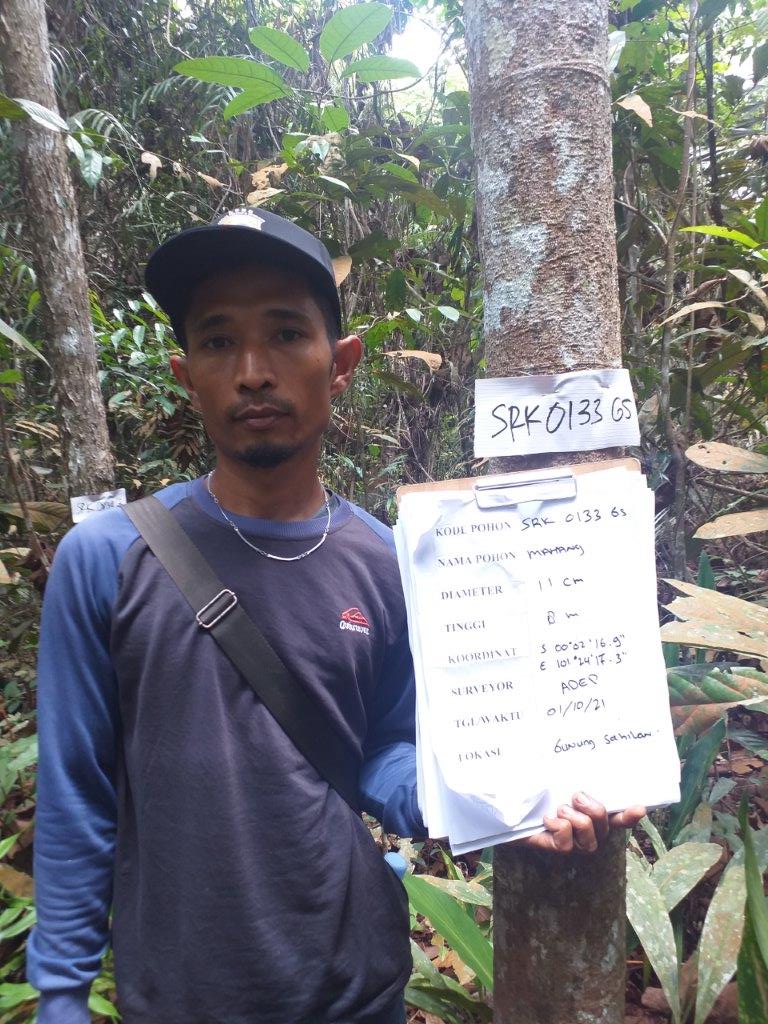 SRK 0133 GS
KODE POHON SRK 0133 GS
NAMA POHON MAHANG
DIAMETER 11 cm
TINGGI 8 m
KOORDINAT S 00°02'16.9"
E 101°24'17.3"
SURVEYOR ADEP
TGL/WAKTU 01/10/21
LOKASI Gunung Sahilan
SRK